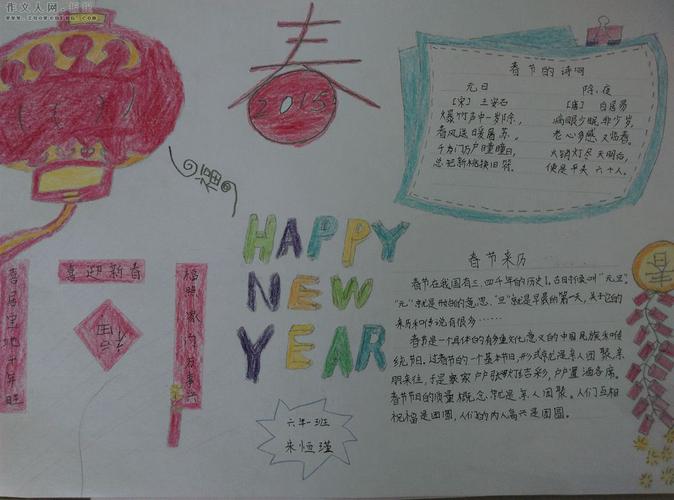 作文人网
www.zuowenren.net
春
2015
福
HAPPY
NEW
YEAR
春节的诗词
元日
[宋] 王安石
爆竹声中一岁除,
春风送暖屠苏。
千万门万户曈曈日,
总把新桃换旧符。
除夜
[唐] 白居易
病眼少眠非少岁,
老心多感又临春。
火销灯尽天明后,
便是平头六十人。
喜迎新春
喜居宝地千年旺
福照家门万事兴
福
春节来历
春节在我国有三、四千年的历史了。古时候叫"元旦"。
"元"就是
的意思,"旦"就是早晨的第一天,关于它的
来历和传说有很多……
春节是一个具体的有多重文化意义的中国民族和传
统节日。过春节的一个基本节日,形式
就是亲人团聚,亲
朋来往,于是家家户户欢歌
,户户置酒
。
春节节日的质量概念,就是亲人团聚。人们互相
祝福是团圆,人们的内
是团圆。
六年一班
朱恒瑾